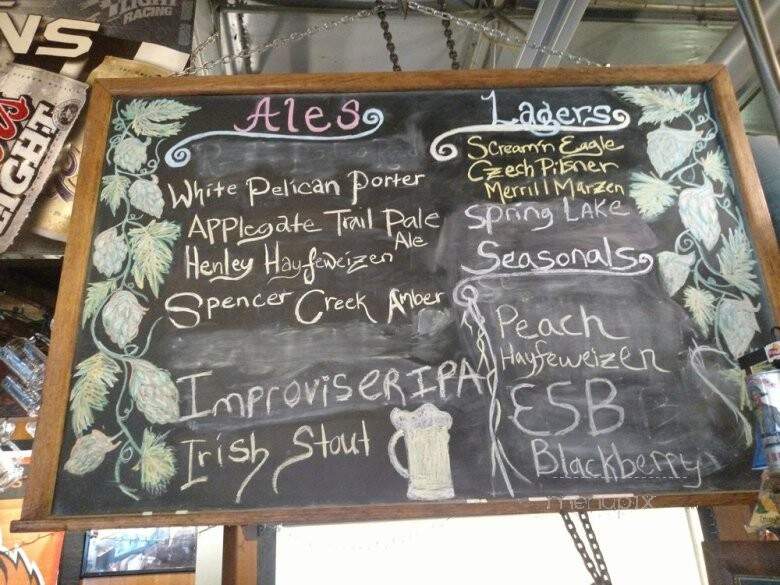 NS
RACING
IGHT
Ales
White Pelican Porter
Applegate Trail Pale
Ale
Henley Hayfeweizen
Spencer Creek Amber
Improviser IPA
Irish Stout
Lagers
Scream'n Eagle
Czech Pilsner
Merrill Marzen
Spring Lake
Seasonals
Peach
Hayfeweizen
ESB
Blackberry
menupix